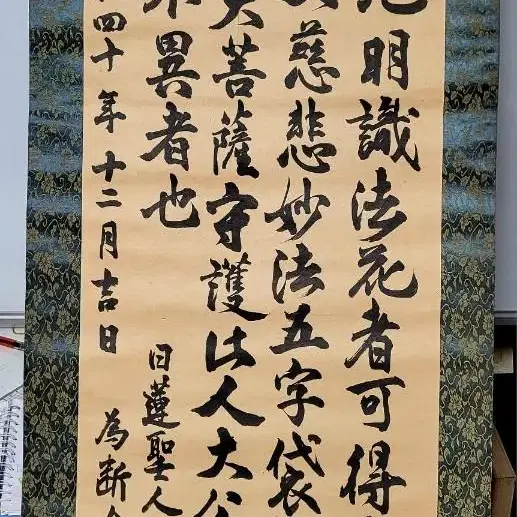 明識法花者可得
慈悲妙法五字袋
大菩薩守護此人大公
不異者也
日蓮聖人
四十年十二月吉日
為断